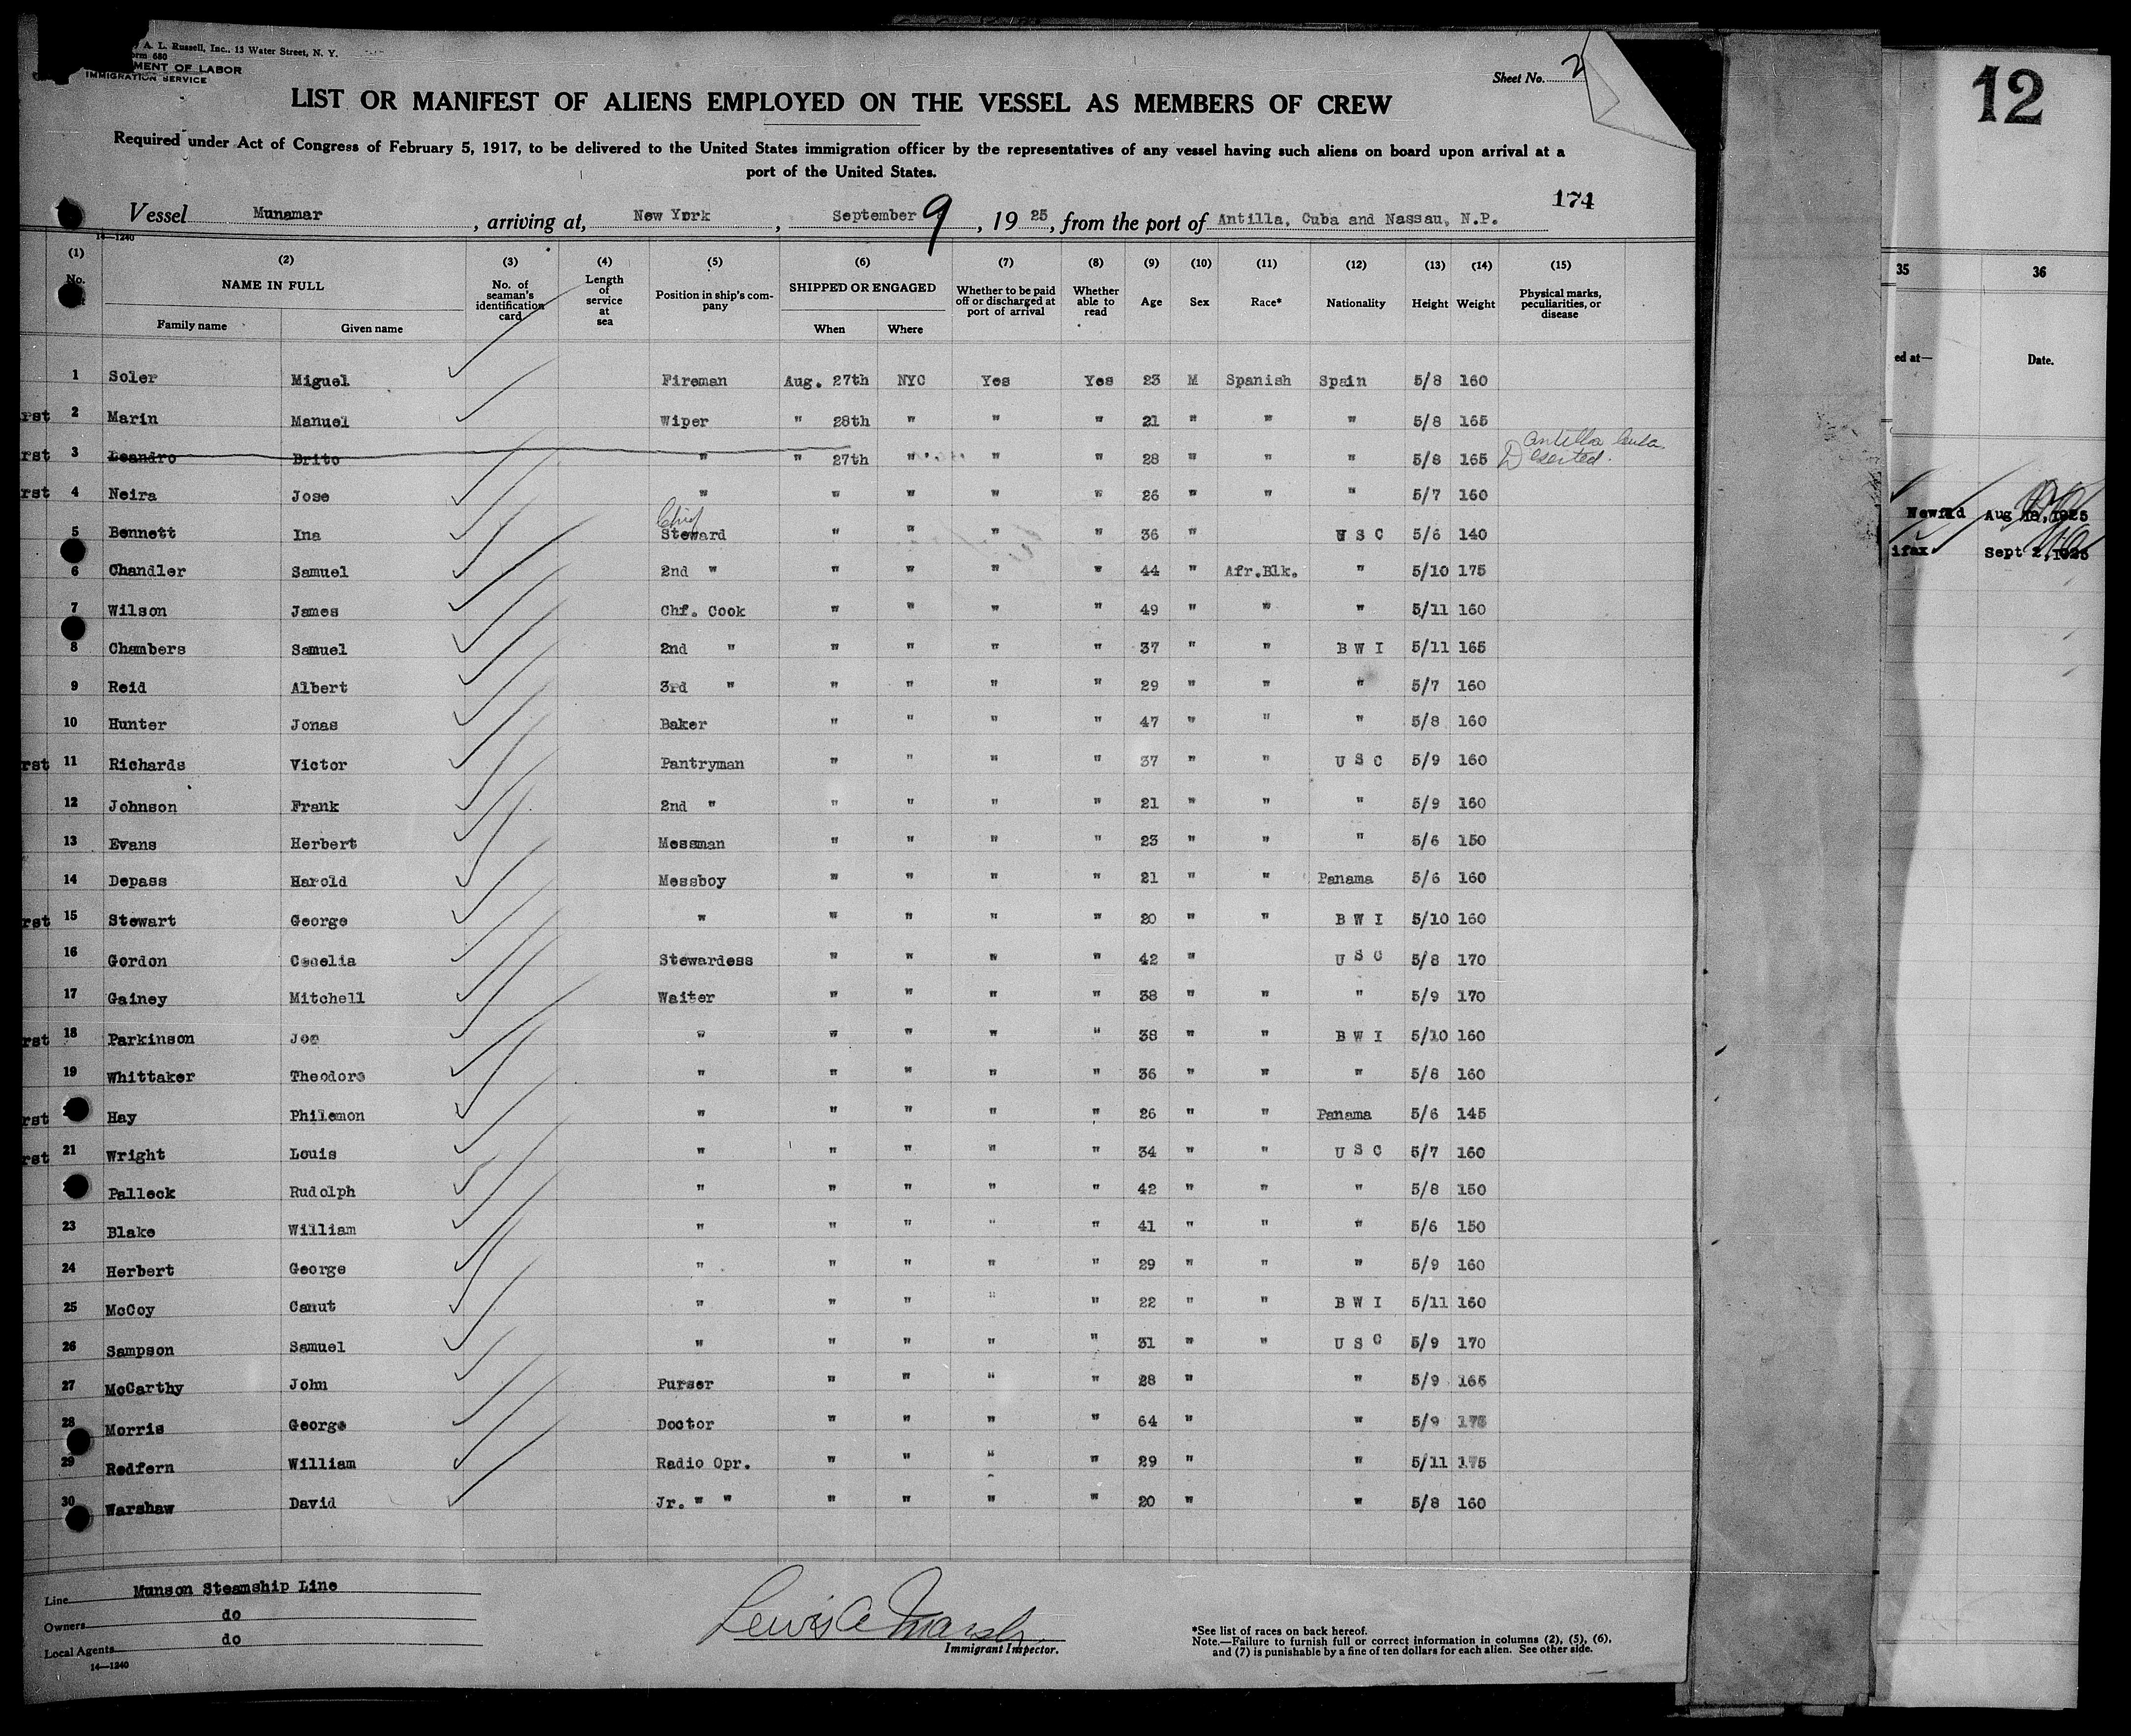 A. L. Russell, Inc., 13 Water Street, N. Y.
orm 680
MENT OF LABOR
IMMIGRATION SERVICE
Sheet No. 2
12
LIST OR MANIFEST OF ALIENS EMPLOYED ON THE VESSEL AS MEMBERS OF CREW
Required under Act of Congress of February 5, 1917, to be delivered to the United States immigration officer by the representatives of any vessel having such aliens on board upon arrival at a
port of the United States.
174
Vessel Munamar, arriving at, New York, September 9, 19 25, from the port of Antilla, Cuba and Nassau, N.P.
14—1240
(1) (2) (3) (4) (5) (6) (7) (8) (9) (10) (11) (12) (13) (14) (15) 35 36
No. NAME IN FULL No. of seaman's identification card Length of service at sea Position in ship's company SHIPPED OR ENGAGED Whether to be paid off or discharged at port of arrival Whether able to read Age Sex Race* Nationality Height Weight Physical marks, peculiarities, or disease
Family name Given name When Where ed at— Date.
1 Soler Miguel Fireman Aug. 27th NYC Yes Yes 23 M Spanish Spain 5/8 160
rst 2 Marin Manuel Wiper " 28th " " " 21 " " " 5/8 165
rst 3 Leandro Brito " " 27th " " " 28 " " " 5/8 165 Antilla Cuba Deserted.
rst 4 Neira Jose " " " " " 26 " " " 5/7 160
5 Bennett Ina Chief Steward " " " " 36 " U S C 5/6 140
6 Chandler Samuel 2nd " " " " " 44 " Afr.Blk. " 5/10 175
7 Wilson James Chf. Cook " " " " 49 " " " 5/11 160
8 Chambers Samuel 2nd " " " " " 37 " " B W I 5/11 165
9 Reid Albert 3rd " " " " " 29 " " " 5/7 160
10 Hunter Jonas Baker " " " " 47 " " " 5/8 160
rst 11 Richards Victor Pantryman " " " " 37 " " U S C 5/9 160
12 Johnson Frank 2nd " " " " " 21 " " " 5/9 160
13 Evans Herbert Messman " " " " 23 " " " 5/6 150
14 Depass Harold Messboy " " " " 21 " " Panama 5/6 160
rst 15 Stewart George " " " " " 20 " " B W I 5/10 160
16 Gordon Stewardess " " " " 42 " U S C 5/8 170
17 Gainey Mitchell Waiter " " " " 38 " " " 5/9 170
rst 18 Parkinson Joe " " " " " 38 " " B W I 5/10 160
19 Whittaker Theodore " " " " " 36 " " " 5/8 160
rst Hay Philemon " " " " " 26 " " Panama 5/6 145
rst 21 Wright Louis " " " " " 34 " " U S C 5/7 160
Palleck Rudolph " " " " " 42 " " " 5/8 150
23 Blake William " " " " " 41 " " " 5/6 150
24 Herbert George " " " " " 29 " " " 5/9 160
25 McCoy Canut " " " " " 22 " " B W I 5/11 160
26 Sampson Samuel " " " " " 31 " " U S C 5/9 170
27 McCarthy John Purser " " " " 28 " " 5/9 165
28 Morris George Doctor " " " " 64 " " 5/9 175
29 Redfern William Radio Opr. " " " " 29 " " 5/11 175
30 Warshaw David Jr. " " " " " " 20 " " 5/8 160
Aug 1925
ifax Sept 2, 1925
Line Munson Steamship Line
Owners do
Local Agents do
14—1240
Lewis A Marsh
Immigrant Inspector.
*See list of races on back hereof.
Note.—Failure to furnish full or correct information in columns (2), (5), (6),
and (7) is punishable by a fine of ten dollars for each alien. See other side.